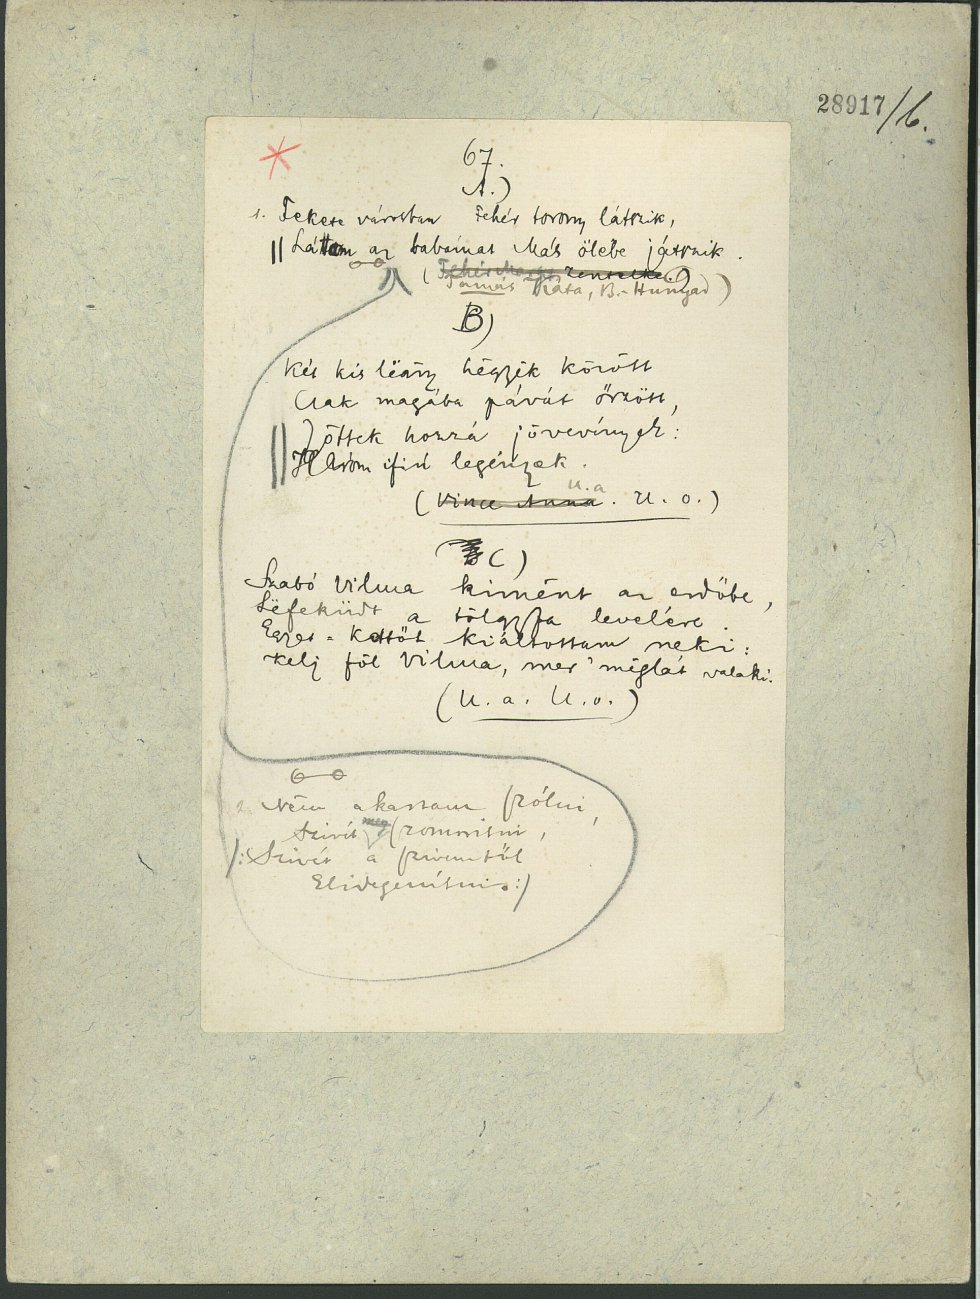 28917/6.
67.
A.)
1. Fekete városban Fehér torony látszik,
|| Láttam az babámat Más ölébe játszik.
(Tamás Kata, B.-Hunyad)
B)
Két kis lëány hëgyëk között
Csak magába pávát őrzött,
|| Jöttek hozzá jövevények:
Három ifiú legények.
(Vince Anna. U. o.)
U. a
C)
Szabó Vilma kimënt az erdőbe,
Lëfeküdt a tölgyfa levelére.
Egyet-kettőt kiáltottam neki:
Kelj föl Vilma, mer' mëglát valaki.
(U. a. U. o.)
2. Nëm akartam szólni,
Szivit meg szomorítni,
|: Szivét a szivemtől
Elidegenítni. :|